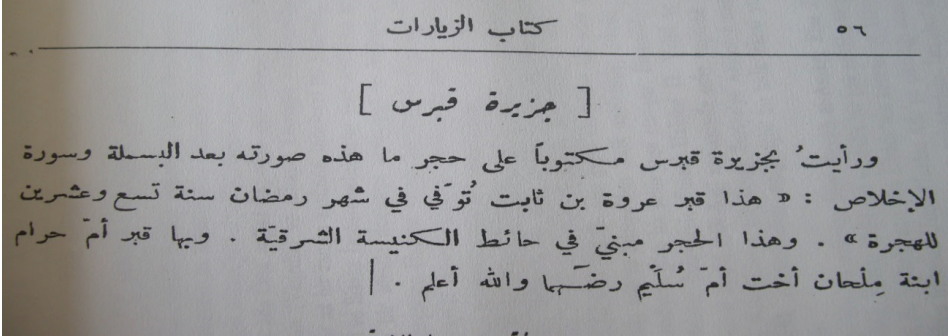 ٥٦ كتاب الزيارات
[ جزيرة قبرس ]
ورأيتُ بجزيرة قبرس مكتوباً على حجر ما هذه صورته بعد البسملة وسورة
الإخلاص : « هذا قبر عروة بن ثابت تُوَفي في شهر رمضان سنة تسع وعشرين
للهجرة » . وهذا الحجر مبنيّ في حائط الكنيسة الشرقيّة . وبها قبر أمّ حرام
ابنة مِلحان أخت أمّ سُلَيْم رضَــهما والله أعلم . |